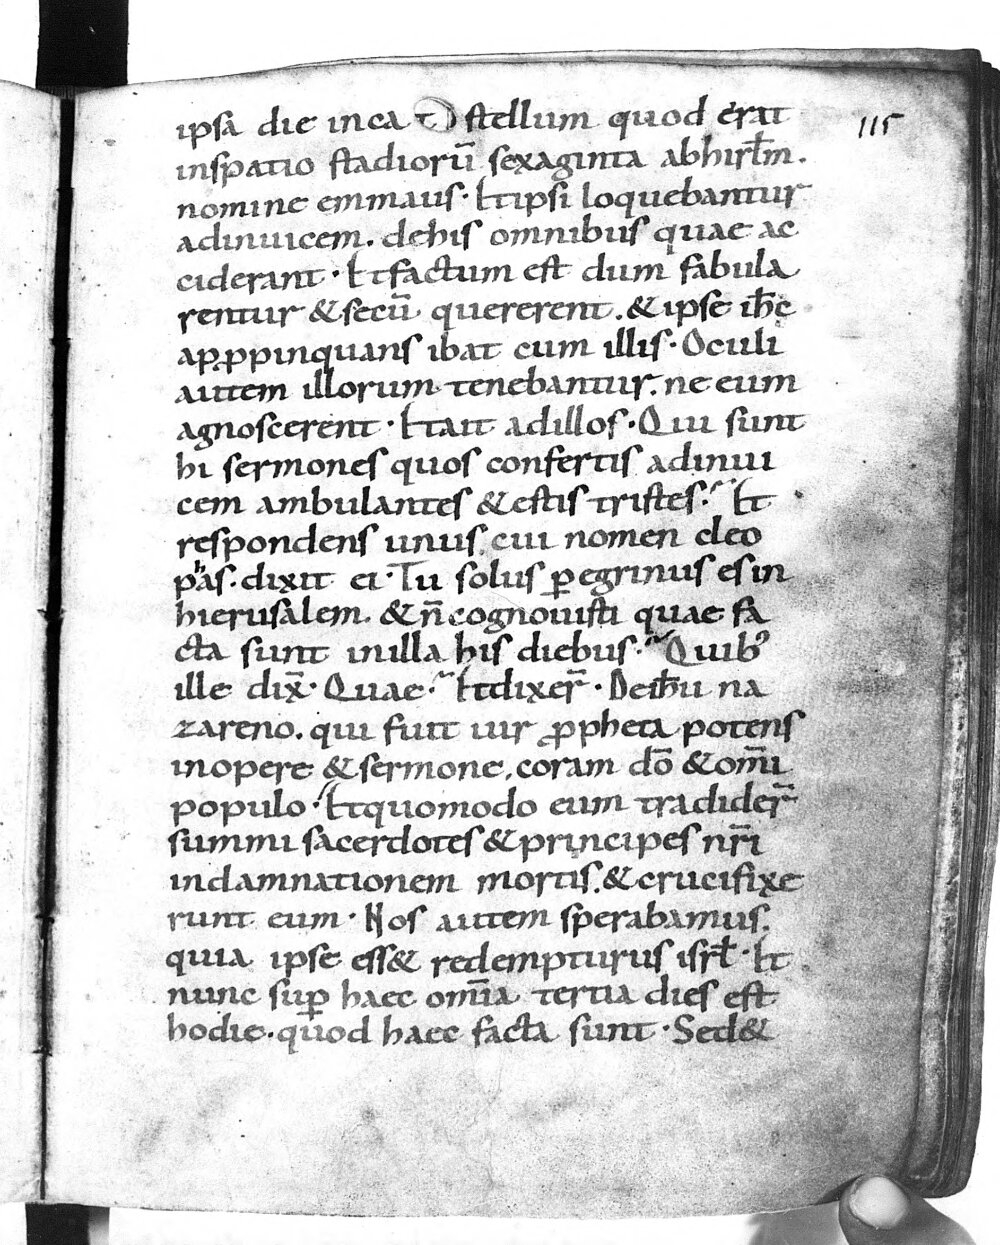 115
ipsa die in ca stellum quod erat
inspatio stadiorū sexaginta abhirłm.
nomine emmaus. Et ipsi loquebantur
adinuicem. dehis omnibus quae ac
ciderant. Et factum est dum fabula
rentur & secū quererent. & ipse ih̅c
appropinquans ibat cum illis. Oculi
autem illorum tenebantur. ne eum
agnoscerent. Et ait adillos. Qui sunt
hi sermones quos confertis adinui
cem ambulantes & estis tristes? Et
respondens unus cui nomen cleo
phas. dixit ei. Tu solus ꝑegrinus es in
hierusalem. & n̅ cognouisti quae fa
cta sunt inilla his diebus? Quibꝰ
ille dix̅. Quae? Et dixer̅. De ih̅u na
zareno. qui fuit uir ꝓpheta potens
inopere & sermone. coram dō & om̅i
populo. Et quomodo eum tradider̅
summi sacerdotes & principes nr̅i
indamnationem mortis. & crucifixe
runt eum. Nos autem sperabamus.
quia ipse ess& redempturus isrł. Et
nunc suꝑ haec om̅ia tertia dies est
hodie. quod haec facta sunt. Sed &